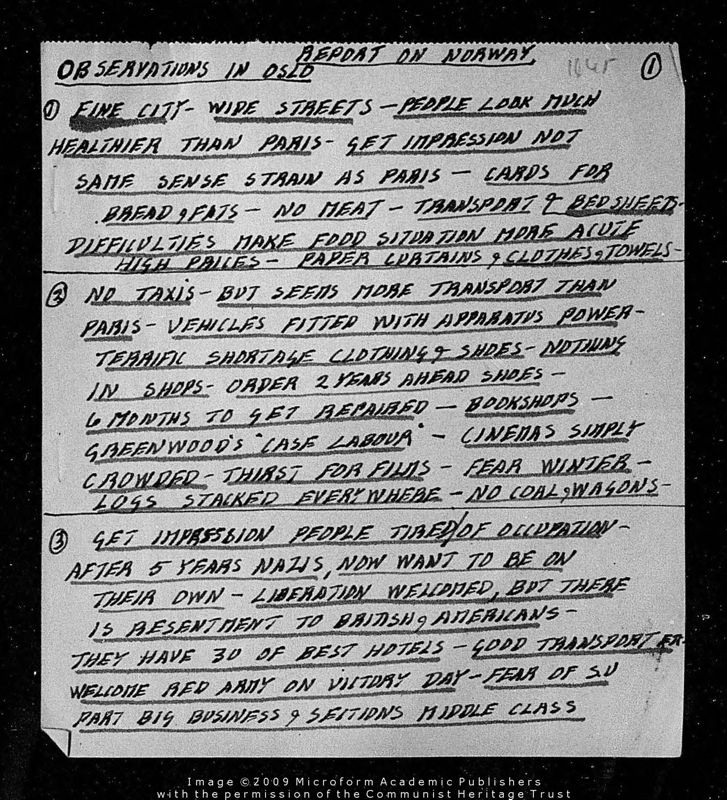 REPORT ON NORWAY
OBSERVATIONS IN OSLO
1945
①
① FINE CITY - WIDE STREETS - PEOPLE LOOK MUCH
HEALTHIER THAN PARIS - GET IMPRESSION NOT
SAME SENSE STRAIN AS PARIS - CARDS FOR
BREAD & FATS - NO MEAT - TRANSPORT & BEDSHEETS -
DIFFICULTIES MAKE FOOD SITUATION MORE ACUTE
HIGH PRICES - PAPER CURTAINS & CLOTHES & TOWELS -
② NO TAXIS - BUT SEEMS MORE TRANSPORT THAN
PARIS - VEHICLES FITTED WITH APPARATUS POWER -
TERRIFIC SHORTAGE CLOTHING & SHOES - NOTHING
IN SHOPS - ORDER 2 YEARS AHEAD SHOES -
6 MONTHS TO GET REPAIRED - BOOKSHOPS -
GREENWOOD'S "CASE LABOUR" - CINEMAS SIMPLY
CROWDED - THIRST FOR FILMS - FEAR WINTER -
LOGS STACKED EVERYWHERE - NO COAL, WAGONS -
③ GET IMPRESSION PEOPLE TIRED/OF OCCUPATION -
AFTER 5 YEARS NAZIS, NOW WANT TO BE ON
THEIR OWN - LIBERATION WELCOMED, BUT THERE
IS RESENTMENT TO BRITISH & AMERICANS -
THEY HAVE 30 OF BEST HOTELS - GOOD TRANSPORT ER-
WELCOME RED ARMY ON VICTORY DAY - FEAR OF SU
PART BIG BUSINESS & SECTIONS MIDDLE CLASS
Image ©2009 Microform Academic Publishers
with the permission of the Communist Heritage Trust